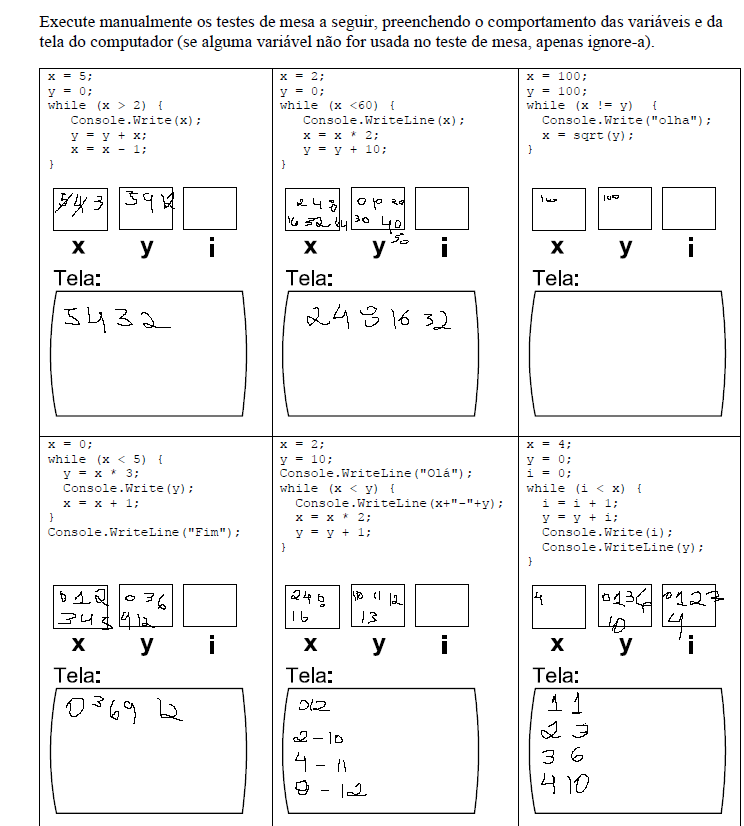 Execute manualmente os testes de mesa a seguir, preenchendo o comportamento das variáveis e da
tela do computador (se alguma variável não for usada no teste de mesa, apenas ignore-a).
x = 5;
y = 0;
while (x > 2) {
Console.Write(x);
y = y + x;
x = x - 1;
}
5 4 3
5 9 12
x y i
Tela:
5 4 3 2
x = 2;
y = 0;
while (x <60) {
Console.WriteLine(x);
x = x * 2;
y = y + 10;
}
2 4 8
16 32 64
0 10 20
30 40
50
x y i
Tela:
2 4 8 16 32
x = 100;
y = 100;
while (x != y) {
Console.Write("olha");
x = sqrt(y);
}
100
100
x y i
Tela:
x = 0;
while (x < 5) {
y = x * 3;
Console.Write(y);
x = x + 1;
}
Console.WriteLine("Fim");
0 1 2
3 4 5
0 3 6
9 12
x y i
Tela:
0 3 6 9 12
x = 2;
y = 10;
Console.WriteLine("Olá");
while (x < y) {
Console.WriteLine(x+"-"+y);
x = x * 2;
y = y + 1;
}
2 4 8
16
10 11 12
13
x y i
Tela:
2-10
4-11
8-12
x = 4;
y = 0;
i = 0;
while (i < x) {
i = i + 1;
y = y + i;
Console.Write(i);
Console.WriteLine(y);
}
4
0 1 3 6
10
0 1 2 3
4
x y i
Tela:
1 1
2 3
3 6
4 10